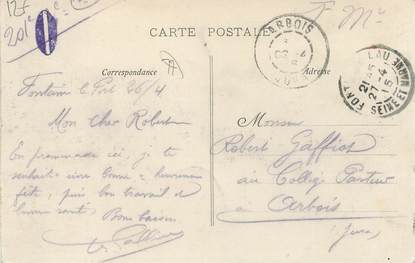 12F
CARTE POSTALE
F. M.
Correspondance
Adresse
ARBOIS
JURA
SEINE ET MARNE
Fontaine le Port 26/4
Mon cher Robert
En promenade ici, je te
souhaite une bonne & heureuse
fête, puis bon travail &
bonne santé. Bons baisers
Monsieur
Robert Gaffiot
au Collège Pasteur
Arbois
Jura